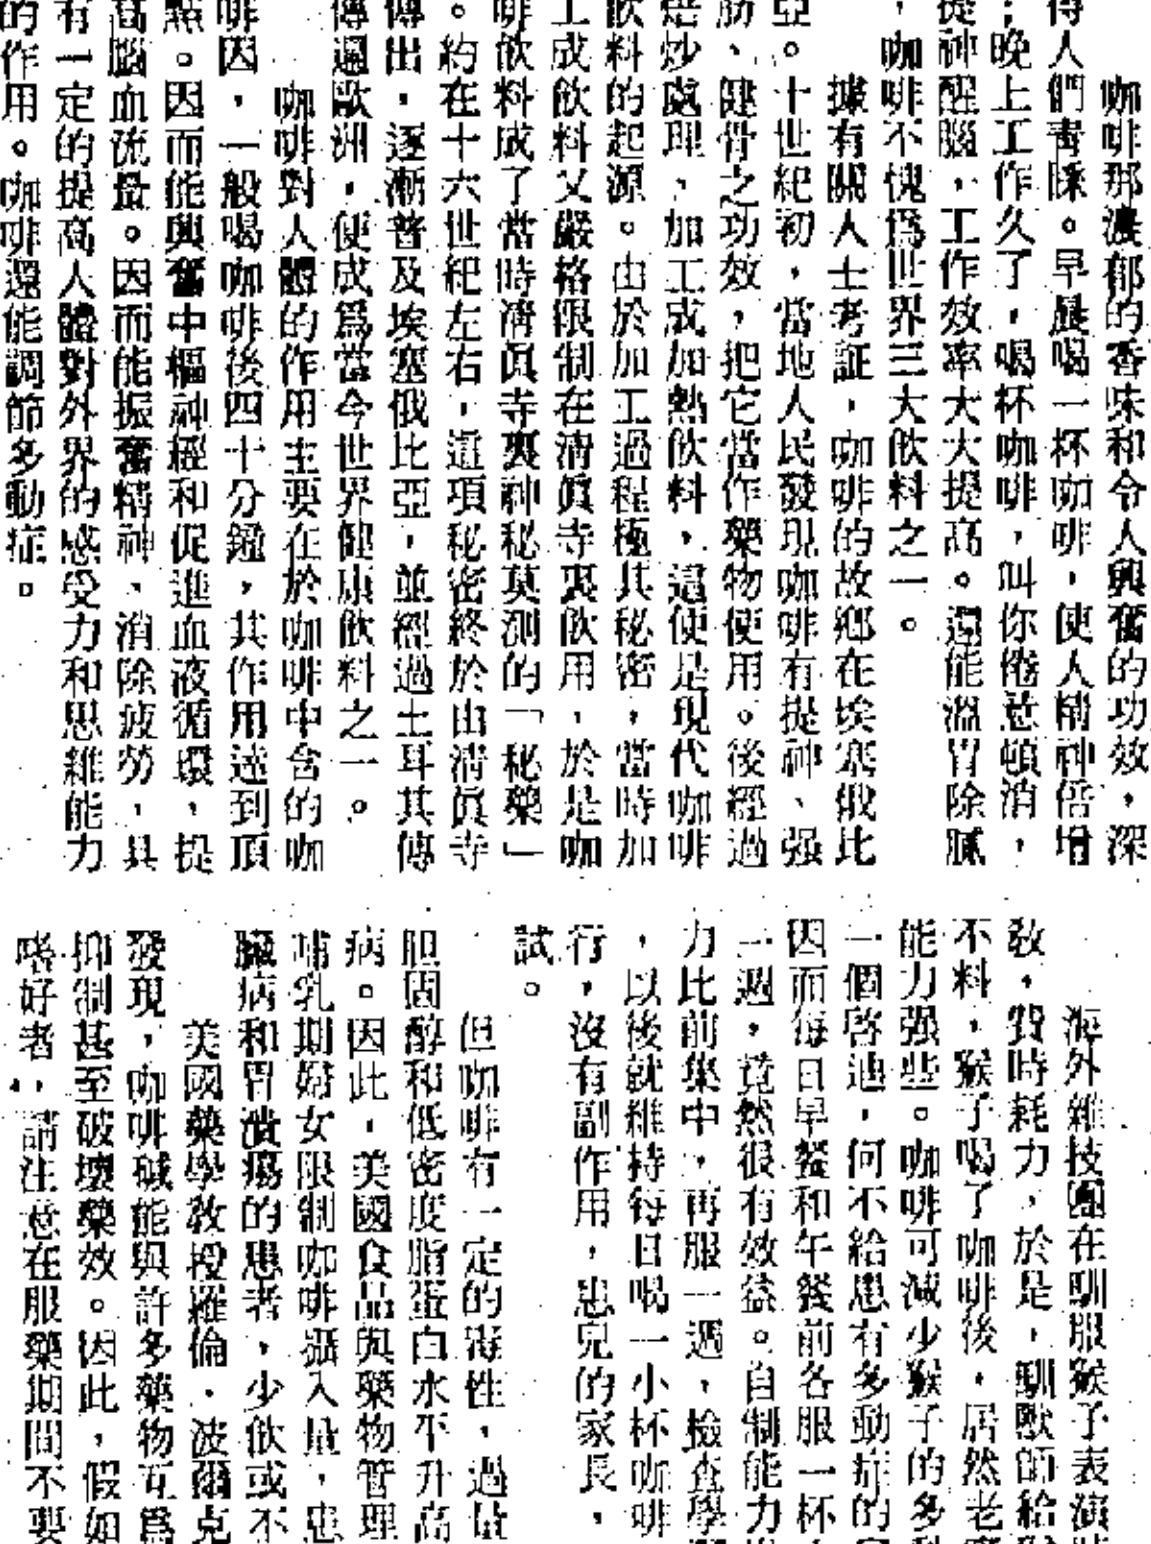 咖啡那濃郁的香味和令人興奮的功效，深
得人們青睞。早晨喝一杯咖啡，使人精神倍增
；晚上工作久了，喝杯咖啡，叫你倦意頓消，
提神醒腦，工作效率大大提高。還能溫胃除膩
，咖啡不愧爲世界三大飲料之一。
據有關人士考証，咖啡的故鄉在埃塞俄比
亞。十世紀初，當地人民發現咖啡有提神、强
筋、健骨之功效，把它當作藥物使用。後經過
焙炒處理，加工成加熱飲料，這便是現代咖啡
飲料的起源。由於加工過程極其秘密，當時加
工成飲料又嚴格限制在清眞寺裏飲用，於是咖
啡飲料成了當時清眞寺裏神秘莫測的「秘藥」
。約在十六世紀左右，這項秘密終於由清眞寺
傳出，逐漸普及埃塞俄比亞，並經過土耳其傳
傳遍歐洲，便成爲當今世界健康飲料之一。
咖啡對人體的作用主要在於咖啡中含的咖
啡因，一般喝咖啡後四十分鐘，其作用達到頂
點。因而能興奮中樞神經和促進血液循環，提
高腦血流量。因而能振奮精神，消除疲勞，具
有一定的提高人體對外界的感受力和思維能力
的作用。咖啡還能調節多動症。
海外雜技團在馴服猴子表演
敎，費時耗力，於是，馴獸師給
不料，猴子喝了咖啡後，居然老
能力强些。咖啡可減少猴子的多
一個啓迪，何不給患有多動症的
因而每日早餐和午餐前各服一杯
一週，竟然很有效益。自制能力
力比前集中，再服一週，檢查學
，以後就維持每日喝一小杯咖啡
行，沒有副作用，患兒的家長，
試。
但咖啡有一定的毒性，過量
胆固醇和低密度脂蛋白水平升高
病。因此，美國食品與藥物管理
哺乳期婦女限制咖啡攝入量，患
臟病和胃潰瘍的患者，少飲或不
美國藥學敎授羅倫．波爾克
發現，咖啡碱能與許多藥物互爲
抑制甚至破壞藥效。因此，假如
嗜好者，請注意在服藥期間不要